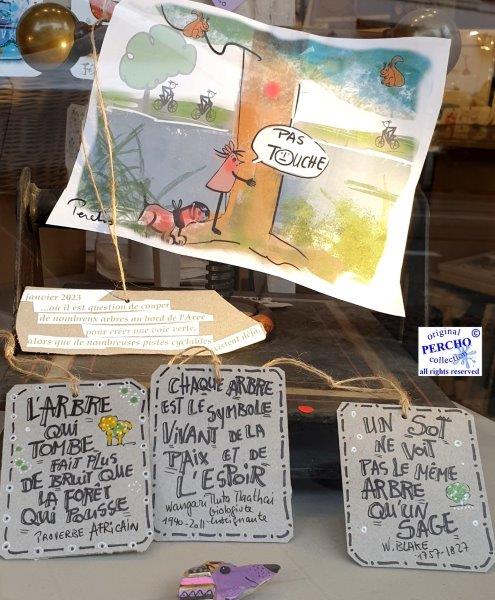 PAS
TOUCHE
Percho
janvier 2023
...où il est question de couper
de nombreux arbres au bord de l'Arve
pour créer une voie verte,
alors que de nombreuses pistes cyclables existent déjà,
original
PERCHO
collection
all rights reserved
L'ARBRE
QUI
TOMBE
FAIT PLUS
DE BRUIT QUE
LA FORÊT
QUI POUSSE
PROVERBE AFRICAIN
CHAQUE ARBRE
EST LE SYMBOLE
VIVANT DE LA
PAIX ET DE
L'ESPOIR
Wangari Muta Maathai
biologiste
1940-2011 enseignante
UN SOT
NE VOIT
PAS LE MÊME
ARBRE
QU'UN
SAGE
W. BLAKE
1757-1827